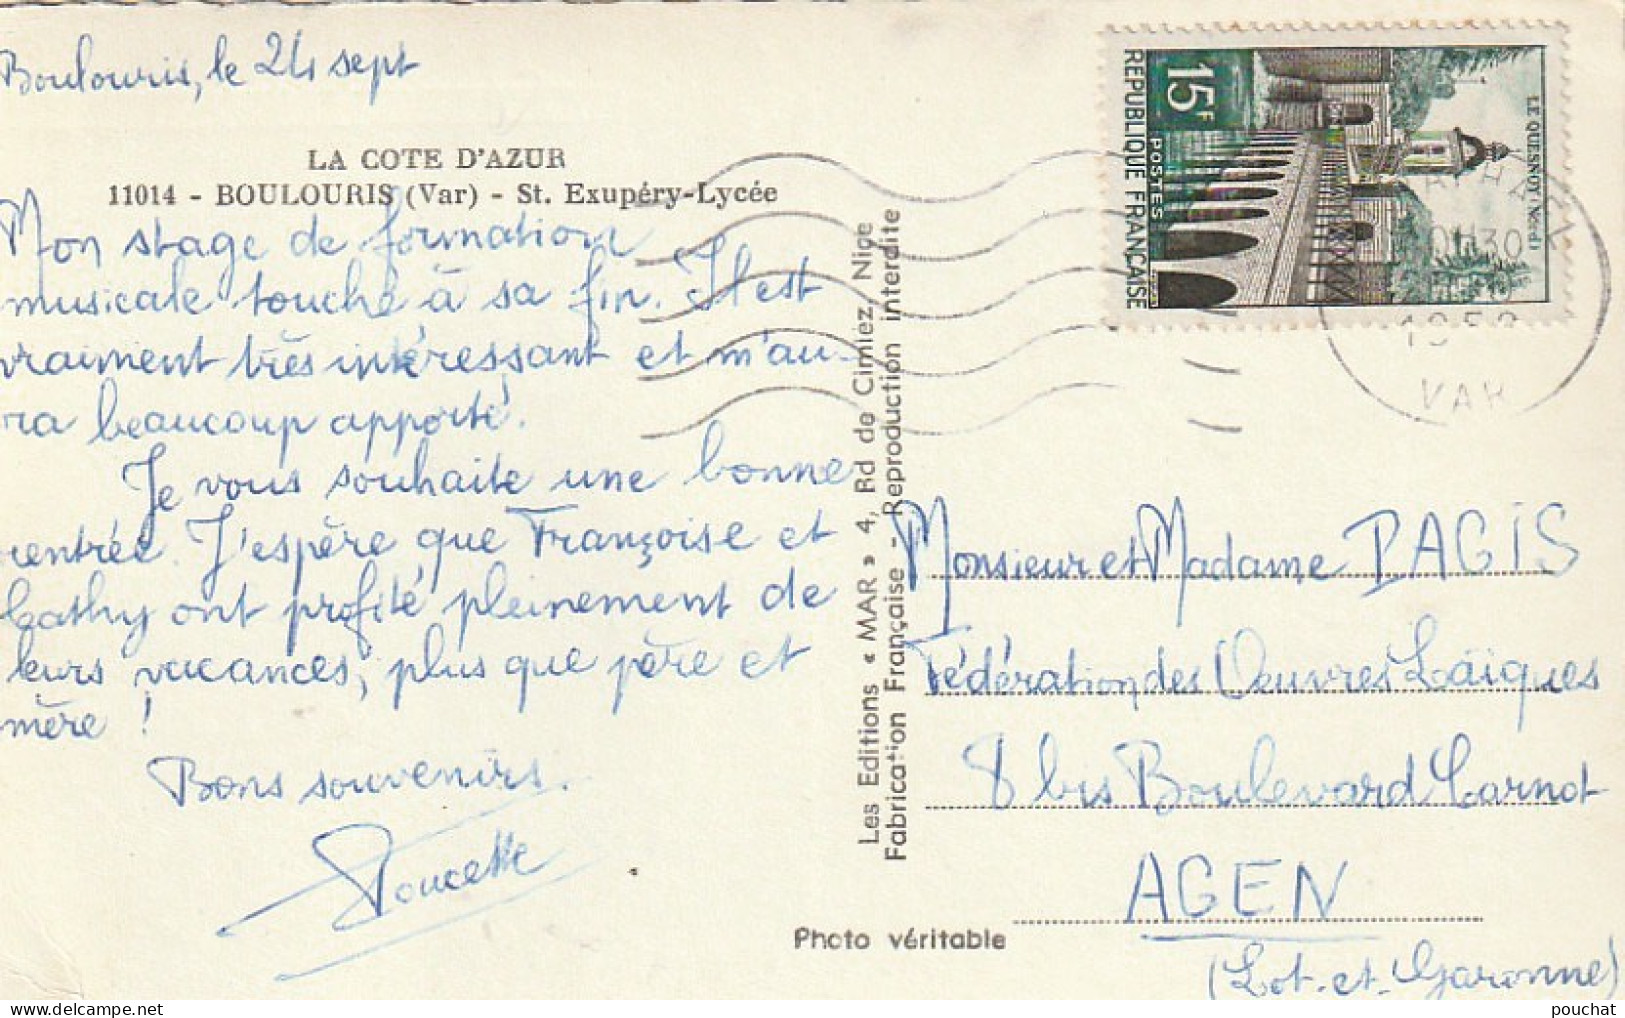 Boulouris, le 24 sept
LA COTE D'AZUR
11014 - BOULOURIS (Var) - St. Exupéry-Lycée
Mon stage de formation
musicale touche à sa fin. Il est
vraiment très intéressant et m'au-
ra beaucoup apporté.
Je vous souhaite une bonne
rentrée. J'espère que Françoise et
Cathy ont profité pleinement de
leurs vacances, plus que père et
mère !
Bons souvenirs.
Les Editions « MAR » 4, Bd de Cimiez, Nice
Fabrication Française - Reproduction interdite
Photo véritable
LE QUESNOY (Nord)
15F
POSTES
REPUBLIQUE FRANÇAISE
VAR
Monsieur et Madame PAGIS
Fédération des Oeuvres Laïques
8 bis Boulevard Carnot
AGEN
(Lot-et-Garonne)
pouchat